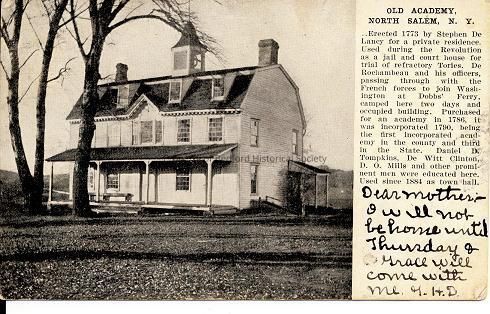 OLD ACADEMY,
NORTH SALEM, N. Y.
..Erected 1773 by Stephen De
Lancy for a private residence.
Used during the Revolution
as a jail and court house for
trial of refractory Tories. De
Rochambeau and his officers,
passing through with the
French forces to join Wash-
ington at Dobbs' Ferry,
camped here two days and
occupied building. Purchased
for an academy in 1786, it
was incorporated 1790, being
the first incorporated acad-
emy in the county and third
in the State. Daniel D.
Tompkins, De Witt Clinton,
D. O. Mills and other promi-
nent men were educated here.
Used since 1884 as town hall.
Dear mother;-
I will not
be home until
Thursday &
Grace will
come with
me. G.H.D.
ord Historical Society